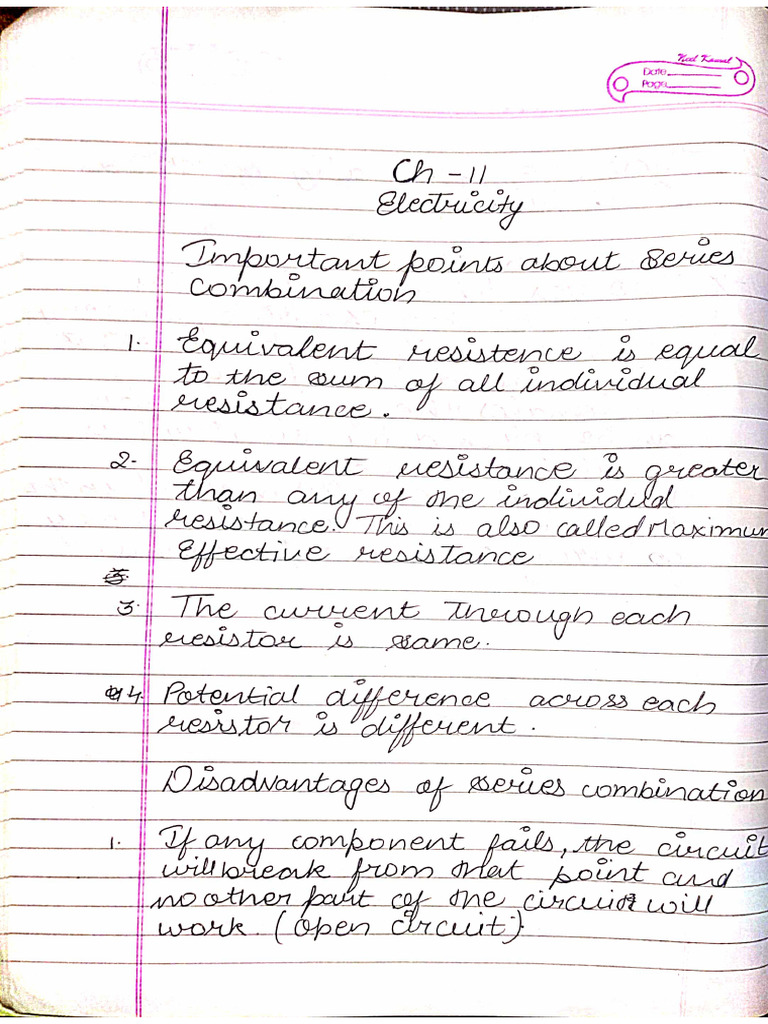 Neel Kamal
Date
Page
Ch - 11
Electricity
Important points about series
combination
1. Equivalent resistence is equal
to the sum of all individual
resistance.
2. Equivalent resistance is greater
than any of the individul
resistance. This is also called Maximum
Effective resistance
3. The current through each
resistor is same.
4. Potential difference across each
resistor is different.
Disadvantages of series combination
1. If any component fails, the circuit
will break from that point and
no other part of the circuit will
work. (open circuit)